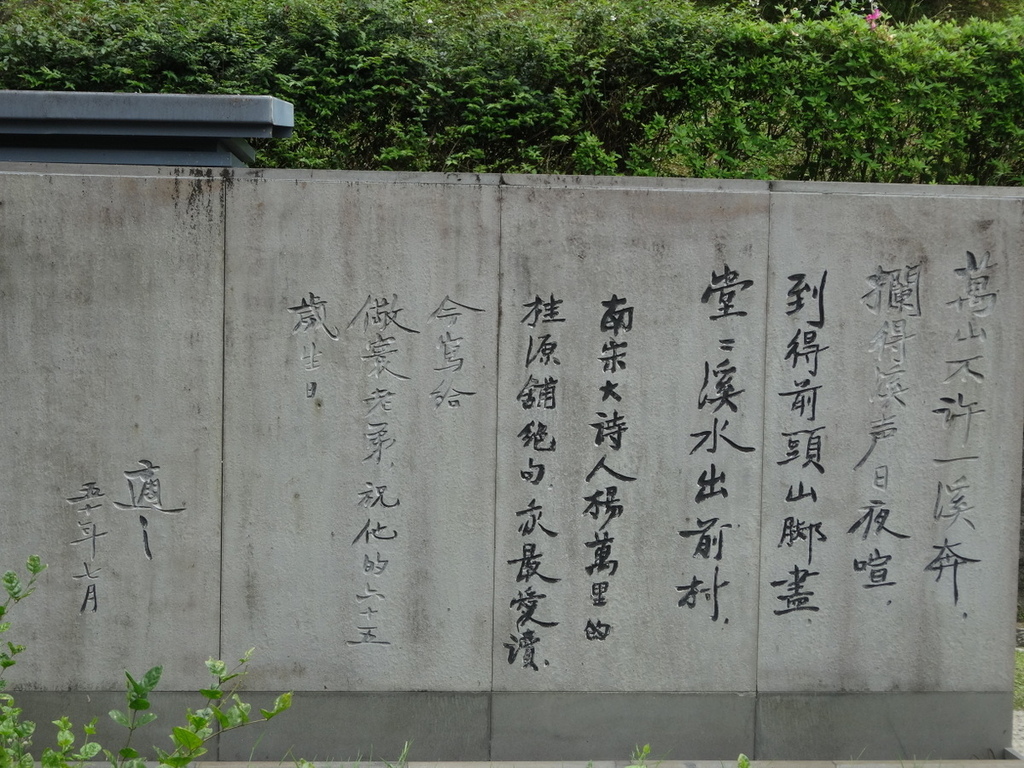 萬山不許一溪奔.
攔得溪声日夜喧.
到得前頭山脚盡.
堂〻溪水出前村.
南宋大诗人楊萬里的
桂源舖绝句,我最爱讀.
今寫给
儆寰老弟,祝他的六十五
歲生日
適之
五十年七月